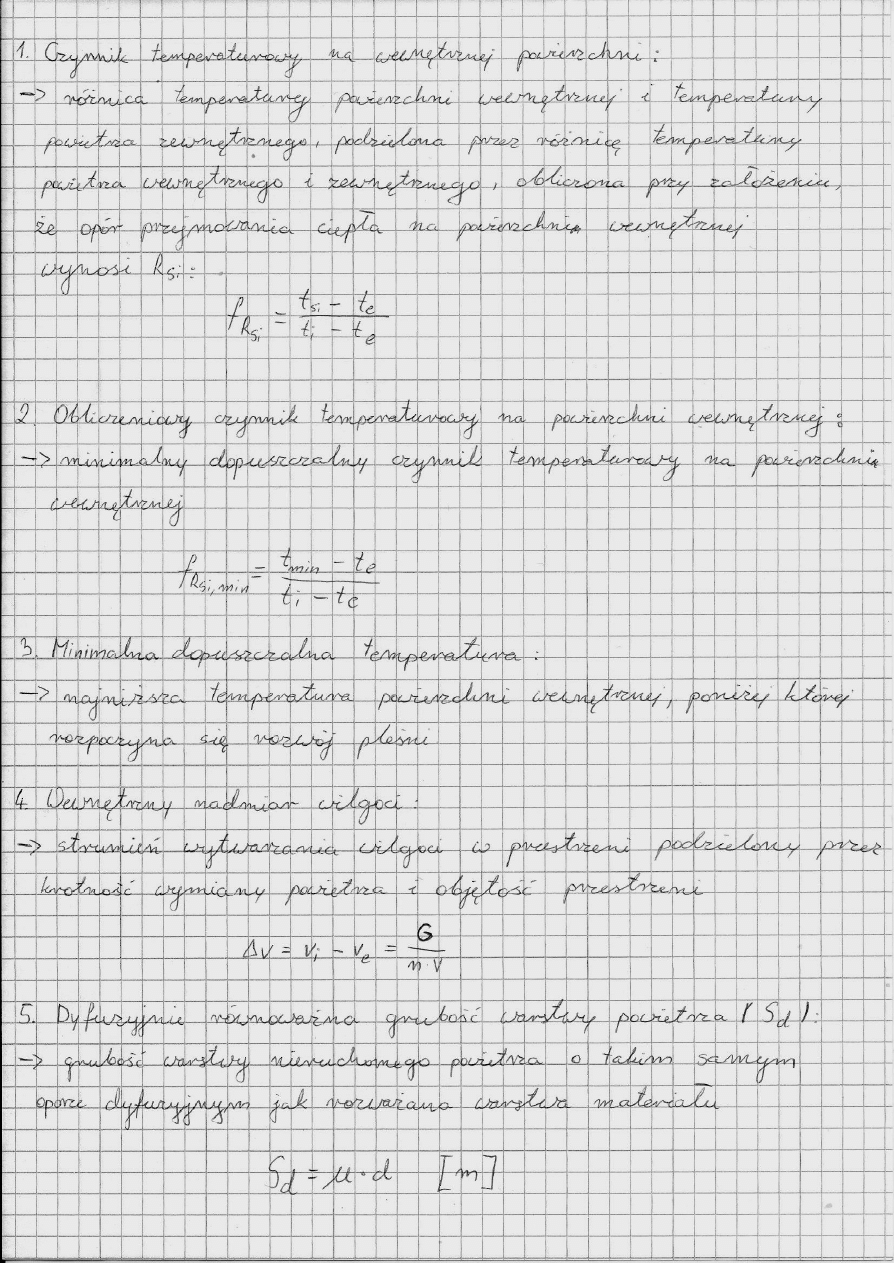 1. Czynnik temperaturowy na wewnętrznej powierzchni :
-> różnica temperatury powierzchni wewnętrznej i temperatury
powietrza zewnętrznego, podzielona przez różnicę temperatury
powietrza wewnętrznego i zewnętrznego, obliczona przy założeniu,
że opór przejmowania ciepła na powierzchni wewnętrznej
wynosi Rsi :
fRsi = (tsi - te) / (ti - te)
2. Obliczeniowy czynnik temperaturowy na powierzchni wewnętrznej :
-> minimalny dopuszczalny czynnik temperaturowy na powierzchni
wewnętrznej
fRsi,min = (tmin - te) / (ti - te)
3. Minimalna dopuszczalna temperatura :
-> najniższa temperatura powierzchni wewnętrznej, poniżej której
rozpoczyna się rozwój pleśni
4. Wewnętrzny nadmiar wilgoci :
-> strumień wytwarzania wilgoci w przestrzeni podzielony przez
krotność wymiany powietrza i objętość przestrzeni
Δv = vi - ve = G / (n·V)
5. Dyfuzyjnie równoważna grubość warstwy powietrza ( Sd ) :
-> grubość warstwy nieruchomego powietrza o takim samym
oporze dyfuzyjnym jak rozważana warstwa materiału
Sd = μ · d [m]